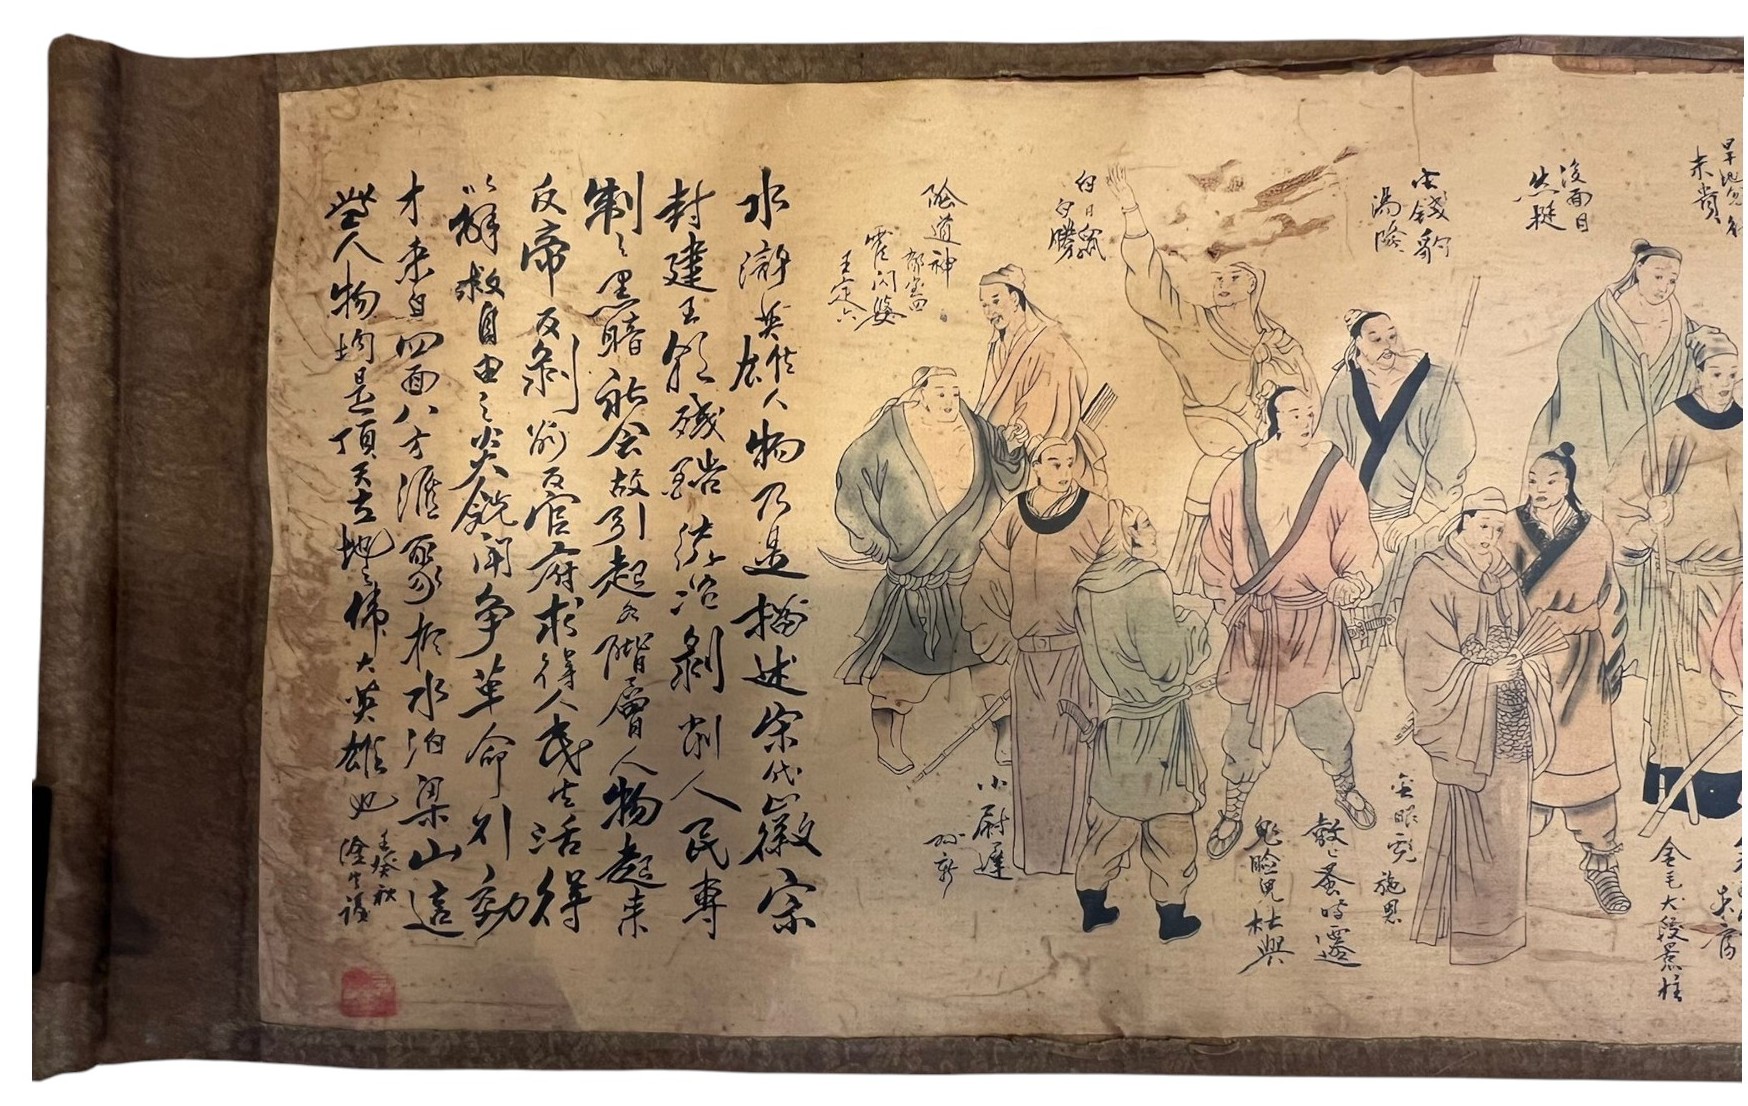 旱地忽律
朱貴
沒面目
焦挺
金錢豹
湯隆
白日鼠
白勝
險道神
郁保四
霍閃婆
王定六
金毛犬段景住
金眼彪施恩
鼓上蚤時遷
鬼臉兒杜興
小尉遲
孫新
水滸英雄人物乃是描述宋代徽宗
封建王朝殘酷統治剝削人民專
制之黑暗社会故引起各階層人物起来
反帝反剝削反官府求得人民生活得
以解救自由之炎鋭鬥争革命行動
才来自四面八方滙聚於水泊梁山這
些人物均是頂天立地之偉大英雄也